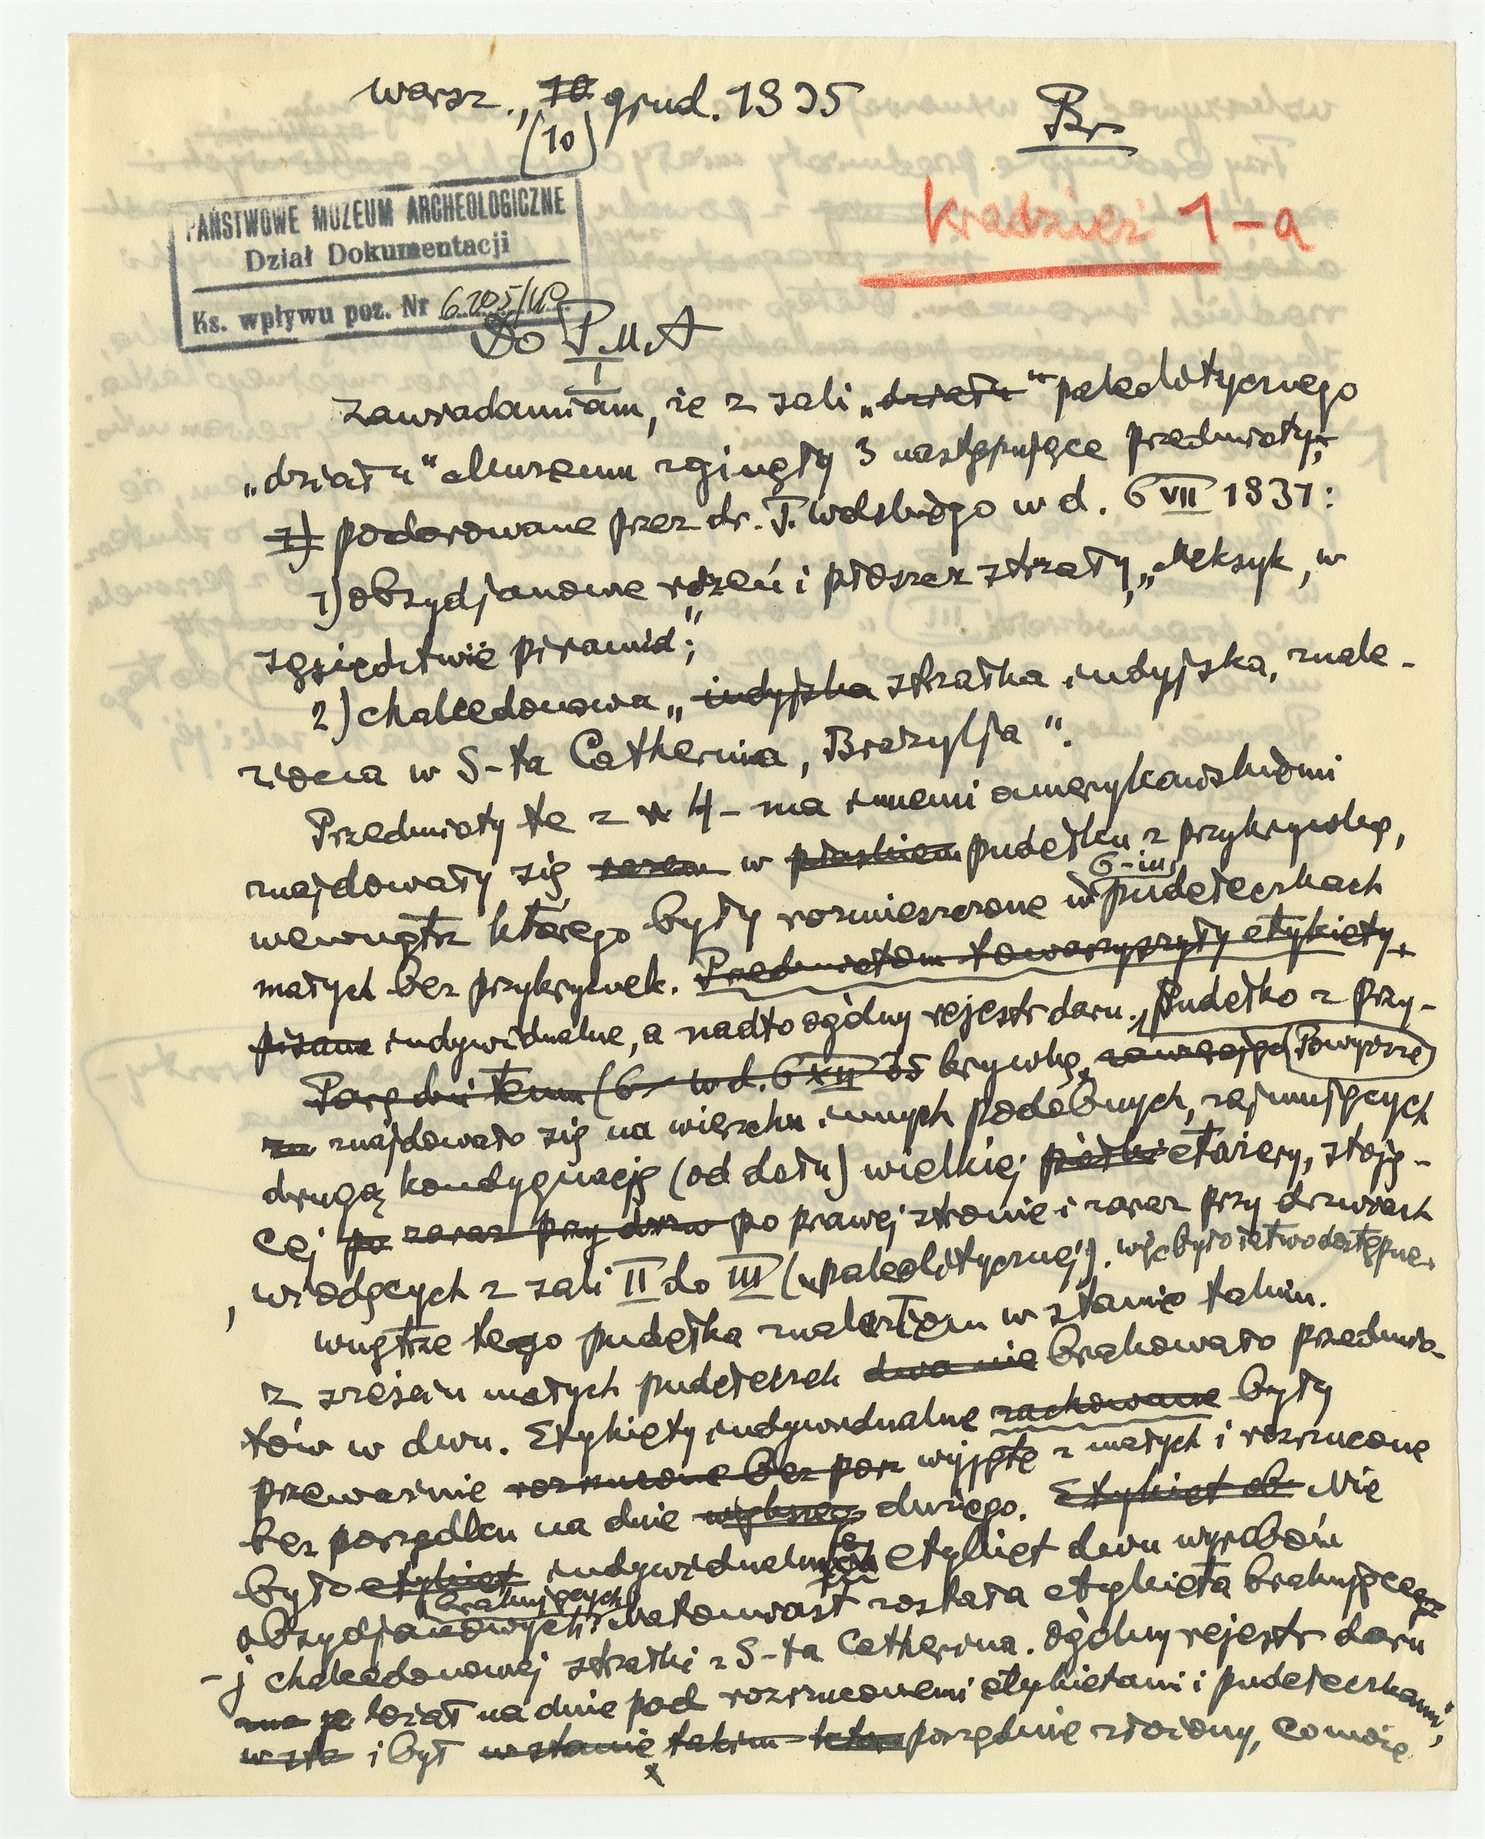 Warsz., 10 grud. 1935
(10)
Br
Kradzież 1-a
PAŃSTWOWE MUZEUM ARCHEOLOGICZNE
Dział Dokumentacji
Ks. wpływu poz. Nr 6105/
Do P.M.A
Zawiadamiam, że z sali „działu" paleolitycznego
„działu" Muzeum zginęły 3 następujące przedmioty,
1) podarowane przez dr. T. Wolskiego w d. 6 VII 1931:
1) obsydjanowe rdzeń i płoszcz strzały, „Meksyk, w
sąsiedztwie piramid";
2) chalcedonowa „indyjska strzałka indyjska, znale-
ziona w S-ta Catherina, Brazylja".
Przedmioty te z 4-ma innemi amerykańskiemi
znajdowały się razem w płaskiem pudełku z przykrywką,
6-iu
wewnątrz którego były rozmieszczone w pudełeczkach
małych bez przykrywek. Przedmiotom towarzyszyły etykiety
pisane indywidualne, a nadto ogólny rejestr daru. Pudełko z przy-
Parę dni temu (6 w d. 6 XII 35 krywką, zawierające (Powyższe)
znajdowało się na wierzchu innych podobnych, zajmujących
drugą kondygnację (od dołu) wielkiej półki etażery, stoją-
cej po zaraz przy drzw po prawej stronie i zaraz przy drzwiach
wiodących z sali II do III („paleolitycznej"). więc było łatwo dostępne.
Wnętrze tego pudełka znalazłem w stanie takim.
Z sześciu małych pudełeczek dwa nie brakowało przedmio-
tów w dwu. Etykiety indywidualne zachowane były
przeważnie rozrzucone bez porz wyjęte z małych i rozrzucone
bez porządku na dnie większego dużego. Etykiet ob Nie
było etykiet indywidualnych etykiet dwu wyrobów
brakujących
obsydjanowych. Natomiast została etykieta brakującej
-j chalcedonowej strzałki z S-ta Catherina. Ogólny rejestr daru
leżał na dnie pod rozrzuconemi etykietami i pudełeczkami,
i był w stanie takim porządnie złożony, co może